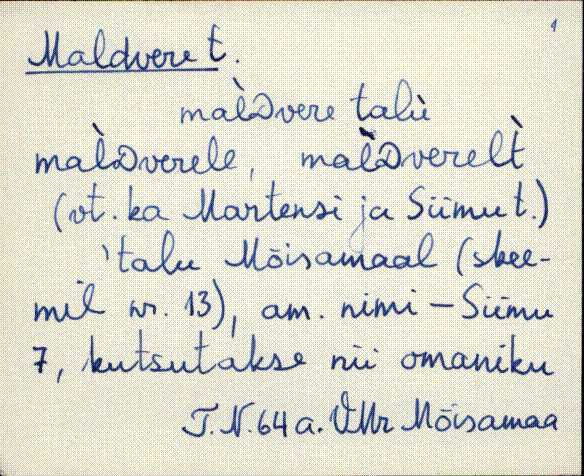 1
Maldvere t.
mal̀Dvere talù
mal̀Dverele, mal̀Dverelt̀
(vt. ka Martensi ja Siimu t.)
'talu Mõisamaal (skee-
mil nr. 13), am. nimi – Siimu
7, kutsutakse nii omaniku
J. N. 64 a. VMr Mõisamaa